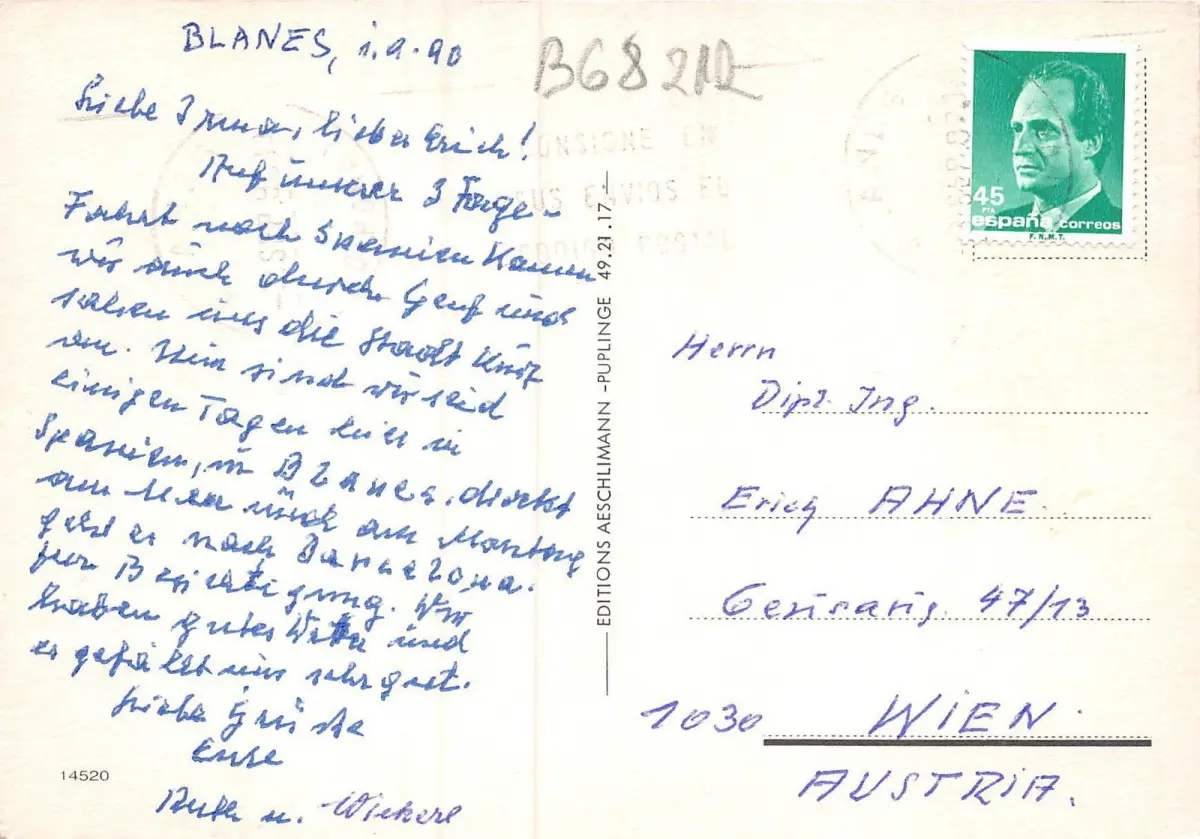 BLANES, 1.9.90
Liebe Irma, lieber Erich!
Auf unserer 3 Tage-
Fahrt nach Spanien kamen
wir auch durch Genf und
sahen uns die Stadt kurz
an. Nun sind wir seid
einigen Tagen hier in
Spanien, in Blanes. direkt
am Meer und am Montag
geht es nach Barcelona.
zur Besichtigung. Wir
haben gutes Wetter und
es gefällt uns sehr gut.
Liebe Grüße
Eure
Ruth u. Wickerl
14520
B68 212
EDITIONS AESCHLIMANN - PUPLINGE 49.21.17
CONSIGNE EN
SUS ENVIOS EL
CODIGO POSTAL
45
PTA
españa correos
F.N.M.T.
Herrn
Dipl. Ing.
Erich AHNE
47/13
1030 WIEN
AUSTRIA.